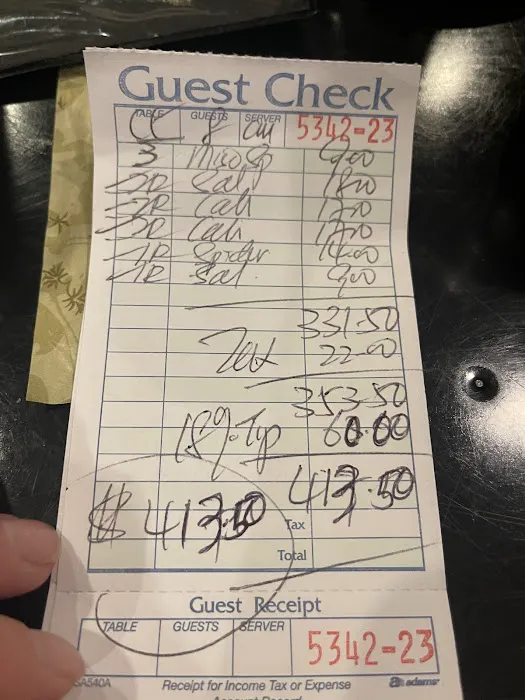 Guest Check
TABLE GUESTS SERVER
CC 8 5342-23
3 Miso Sp 9.00
2R Sal 18.00
2R Cali
2R Cali
1R Spider 14.00
1R Sal. 9.00
331.50
Tax 22.00
353.50
18% Tip 60.00
413.50
$ 413.50
Tax
Total
Guest Receipt
TABLE GUESTS SERVER
5342-23
SA540A Receipt for Income Tax or Expense adams
Account Record